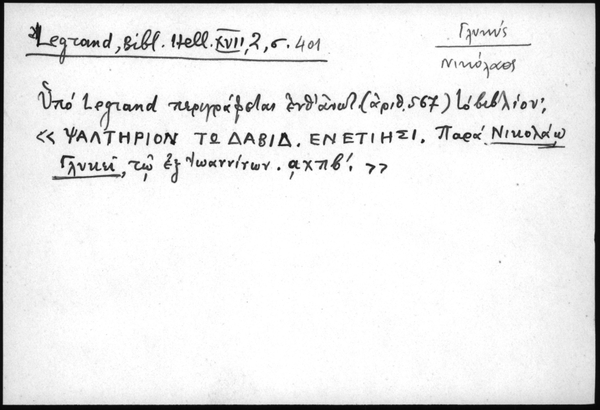 Legrand, Bibl. Hell. XVII, 2, σ. 401
Γλυκύς
Νικόλαος
Ὑπό Legrand περιγράφεται ἐνθ' ἀνωτ. (ἀριθ. 567) τό βιβλίον:
«ΨΑΛΤΗΡΙΟΝ ΤΩ ΔΑΒΙΔ. ΕΝΕΤΙΗΣΙ. Παρά Νικολάῳ
Γλυκεῖ, τῷ ἐξ Ἰωαννίνων. αχπβ'.»